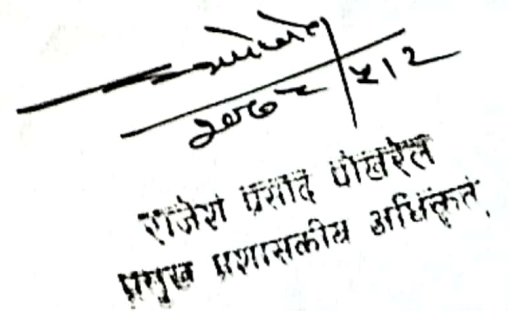 २०७८ ५।२
राजेश प्रसाद पोखरेल
प्रमुख प्रशासकीय अधिकृत